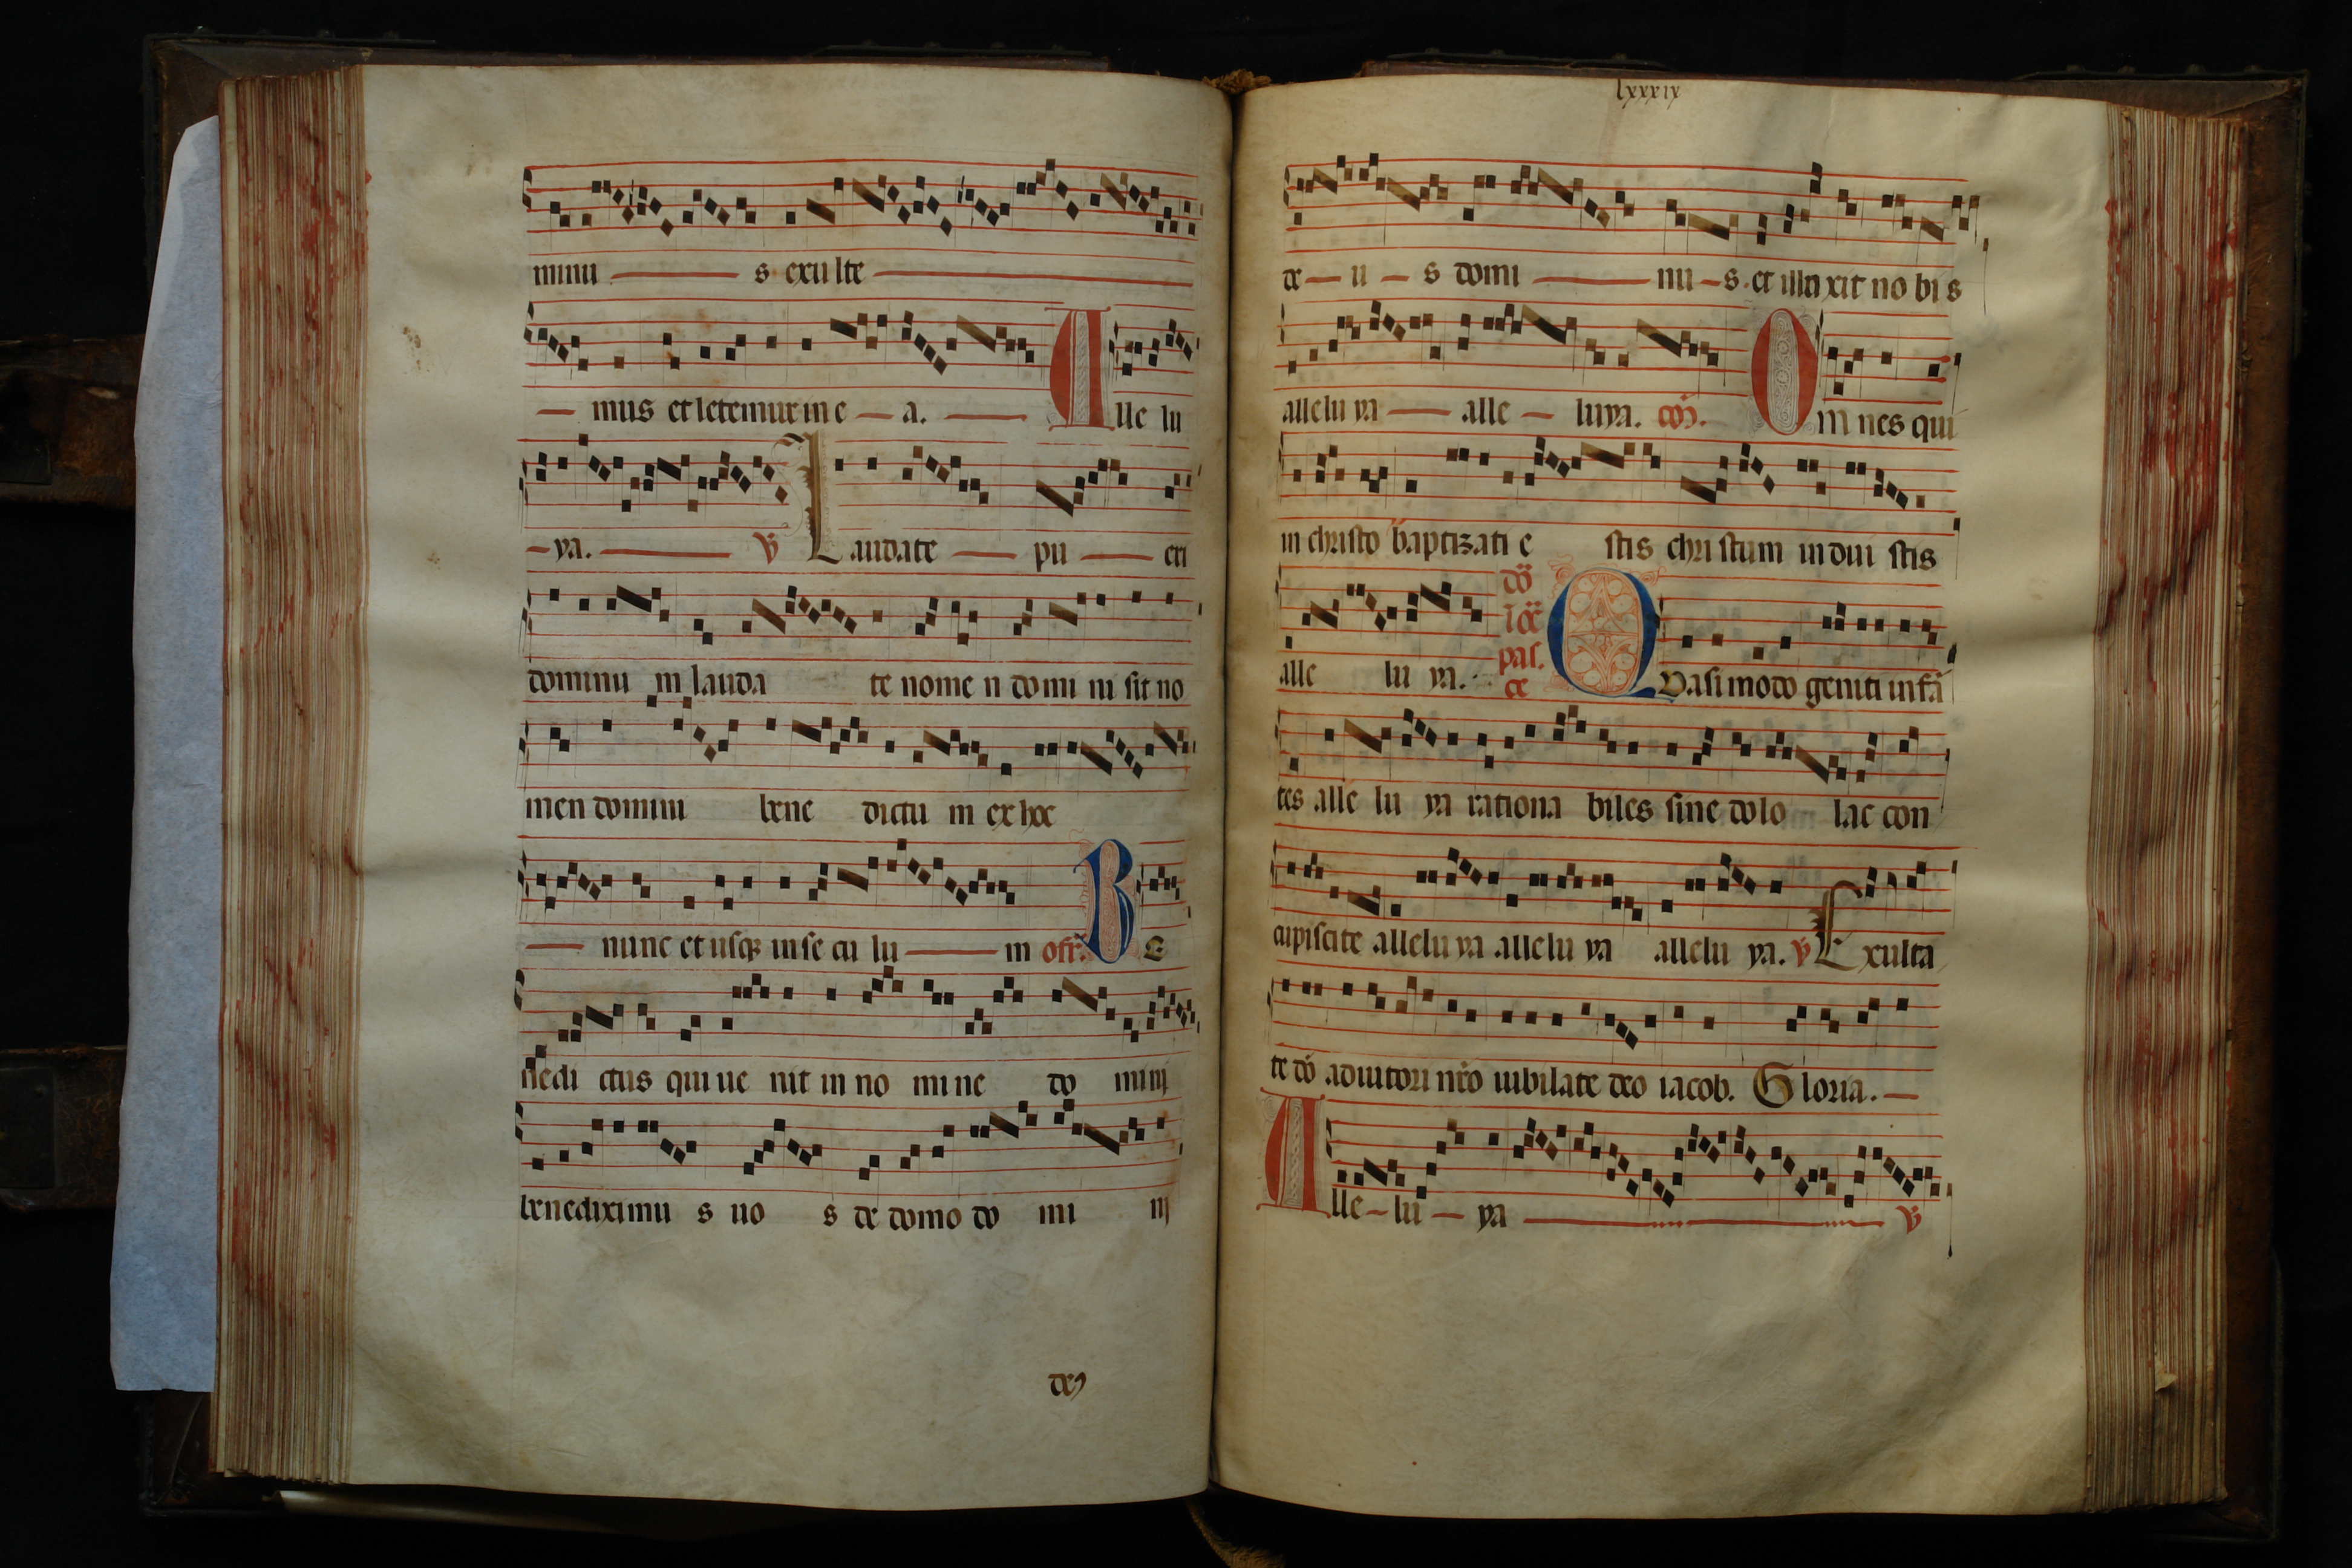 minu s exulte
mus et letemur in e a. Alle lu
ya. ℣ Laudate pu eri
dominu m lauda te nome n domi ni sit no
men domini bene dictu m ex hoc
nunc et usqꝫ in se cu lu m offr̄. Be
nedi ctus qui ue nit in no mi ne do minj
benediximu s uo s de domo do mi nj
lxxxix
de u s domi nu s. et illu xit no bis
allelu ya alle luya. cōm. Om nes qui
in christo baptizati e stis chri stum in dui stis
alle lu ya. Quasi modo geniti infā
tes alle lu ya rationa biles sine dolo lac con
cupiscite allelu ya allelu ya allelu ya. ℣ Exulta
te dō adiutori nr̄o iubilate deo iacob. Gloria.
Alle lu ya ℣